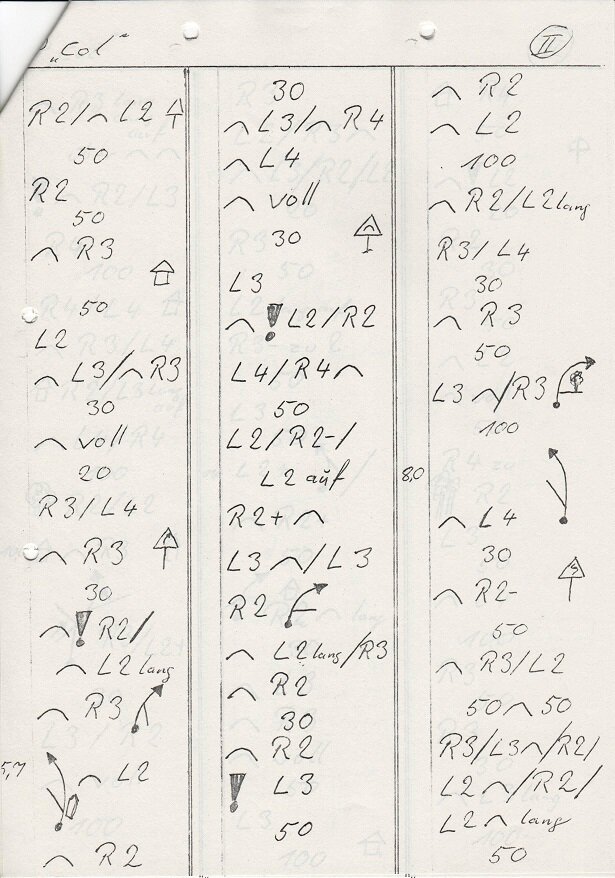 "Col"
II
R2/⌒ L2
50
R2
50
⌒ R3
50
L2
⌒ L3/⌒R3
30
⌒ voll
20
R3/L4
⌒ R3
30
⌒ ! R2/
⌒ L2 lang
⌒ R3
5,7
⌒ L2
⌒ R2
30
⌒ L3/⌒ R4
⌒ L4
⌒ voll
30
L3
⌒ ! L2/R2
L4/R4 ⌒
50
L2/R2-/
L2 auf
R2+ ⌒
L3 ⌒/L3
R2
⌒ L2 lang/R3
⌒ R2
30
⌒ R2
! L3
50
⌒ R2
⌒ L2
100
⌒ R2/L2 lang
R3/L4
30
⌒ R3
50
L3 ⌒/R3
100
8,0
⌒ L4
30
⌒ R2-
50
⌒ R3/L2
50 ⌒ 50
R3/L3⌒/R2/
L2 ⌒/R2/
L2 ⌒ lang
50